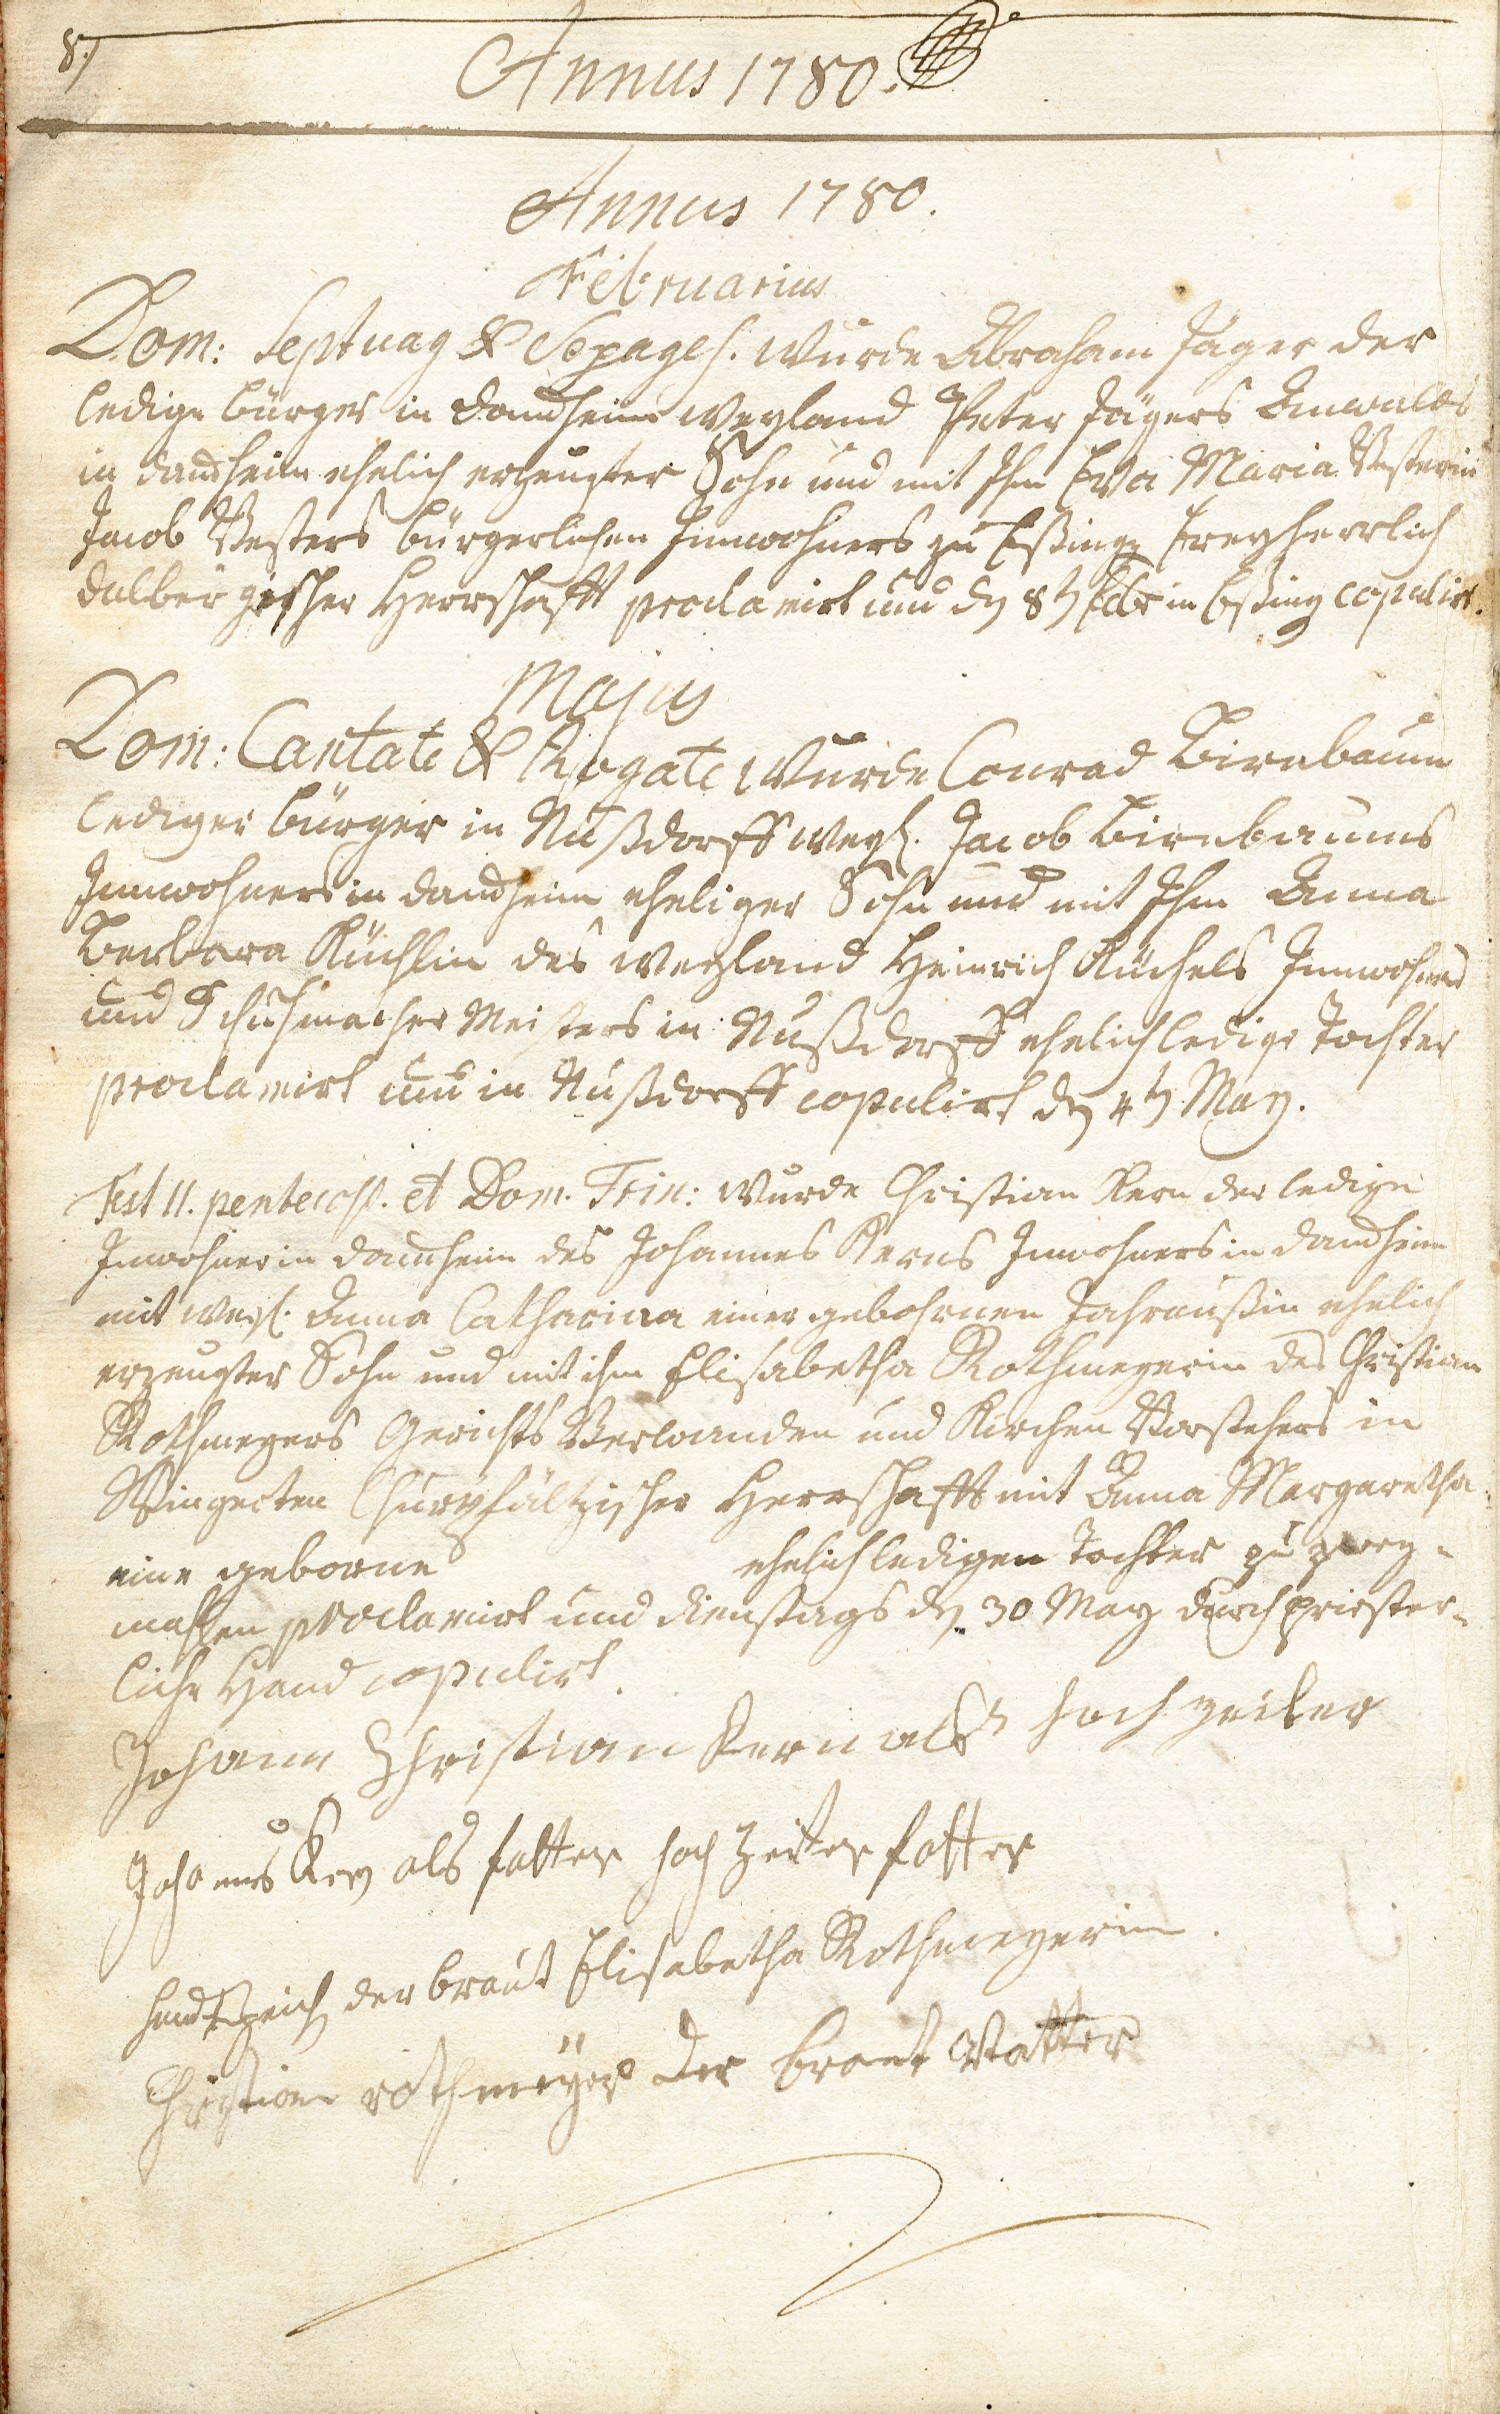 8.)
Annus 1780.
Annus 1780.
Februarius
Dom: Septuag & Sexages. wurde Abraham Jäger der
ledige bürger in damheim weyland Peter Jägers Anwalds
in damheim ehelich erzeugter Sohn und mit Ihm Eva Maria Vesterin
Jacob Vesters bürgerlichen Innwohners zu Eßing freyherrlich
dalbergischer Herrschafft proclamirt und dh 8t Febr in Eßing copulirt.
Majus
Dom: Cantate & Rogate wurde Conrad Birnbaum
lediger bürger in Nußdorff weyl. Jacob Birnbaums
Innwohners in damheim eheliger Sohn und mit Ihm Anna
Barbara Küchlin des weyland Heinrich Küchels Innwohners
und Schuhmacher Meisters in Nußdorff ehelich ledige Tochter
proclamirt und in Nußdorff copulirt dh 4t May.
Fest II. pentecost. et Dom. Trin: wurde Christian Kern der ledige
Inwohner in damheim des Johannes Kerns Inwohners in damheim
mit weyl. Anna Catharina einer gebohrnen Jahraußin ehelich
erzeugter Sohn und mit ihm Elisabetha Rothmeyerin des Christian
Rothmeyers Gerichts Verwanden und Kirchen Vorstehers in
Wingerten Churpfältzischer Herrschafft mit Anna Margaretha
eine geborne ehelich ledigen Tochter zu zwey-
mahlen proclamirt und dienstags dh. 30 May durch priester-
liche Hand copulirt.
Johann Christian Kern alß hoch zeiter
Johannes Kern als fatter hoch zeiter fatter
handzeich der braut Elisabetha Rothmeyerin.
Christian rothmeÿer der braut Vatter